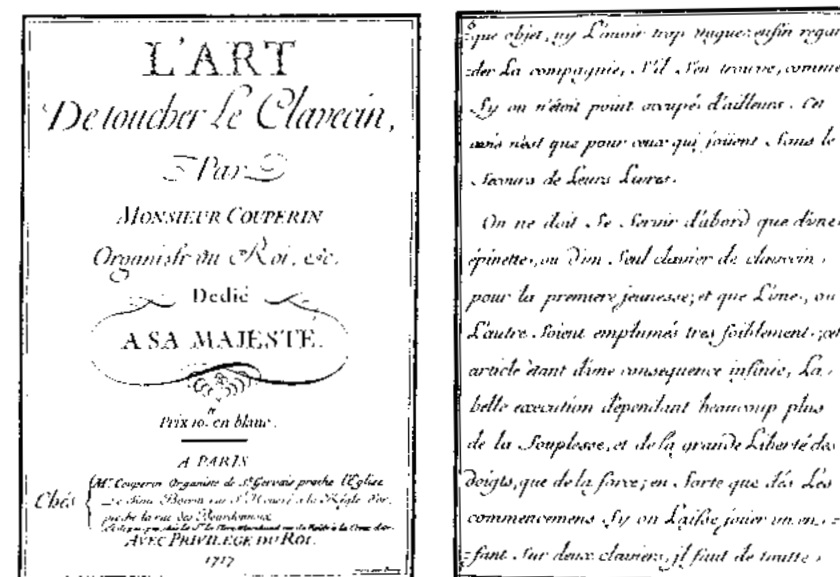 L'ART
De toucher Le Clavecin,
Par
MONSIEUR COUPERIN
Organiste du Roi, etc.
Dedié
A SA MAJESTÉ.
Prix 10.tt en blanc.
A PARIS
Chés
Mr. Couperin Organiste de St. Gervais proche l'Eglise
Le Sieur Boivin rue St. Honoré à la Régle d'or,
proche la rue des Bourdonnois
AVEC PRIVILEGE DU ROI.
1717
6
=que objet, ny L'avoir trop vague: enfin regar
=der La compagnie, S'il S'en trouve, comme
Sy on n'étoit point occupés d'ailleurs. Cet
avis n'est que pour ceux qui joüent Sans le
Secours de Leurs Livres.
On ne doit Se Servir d'abord que d'une
épinette, ou d'un Seul clavier de clavecin,
pour la premiere jeunesse; et que L'une, ou
L'autre Soient emplumés tres foiblement; cet
article étant d'une consequence infinie, La
belle execution dépendant beaucoup plus
de la Souplesse, et de la grande Liberté des
doigts, que de la force; en Sorte que dés Les
commencemens Sy on Laisse joüer un en =
=fant Sur deux claviers, il faut de toutte